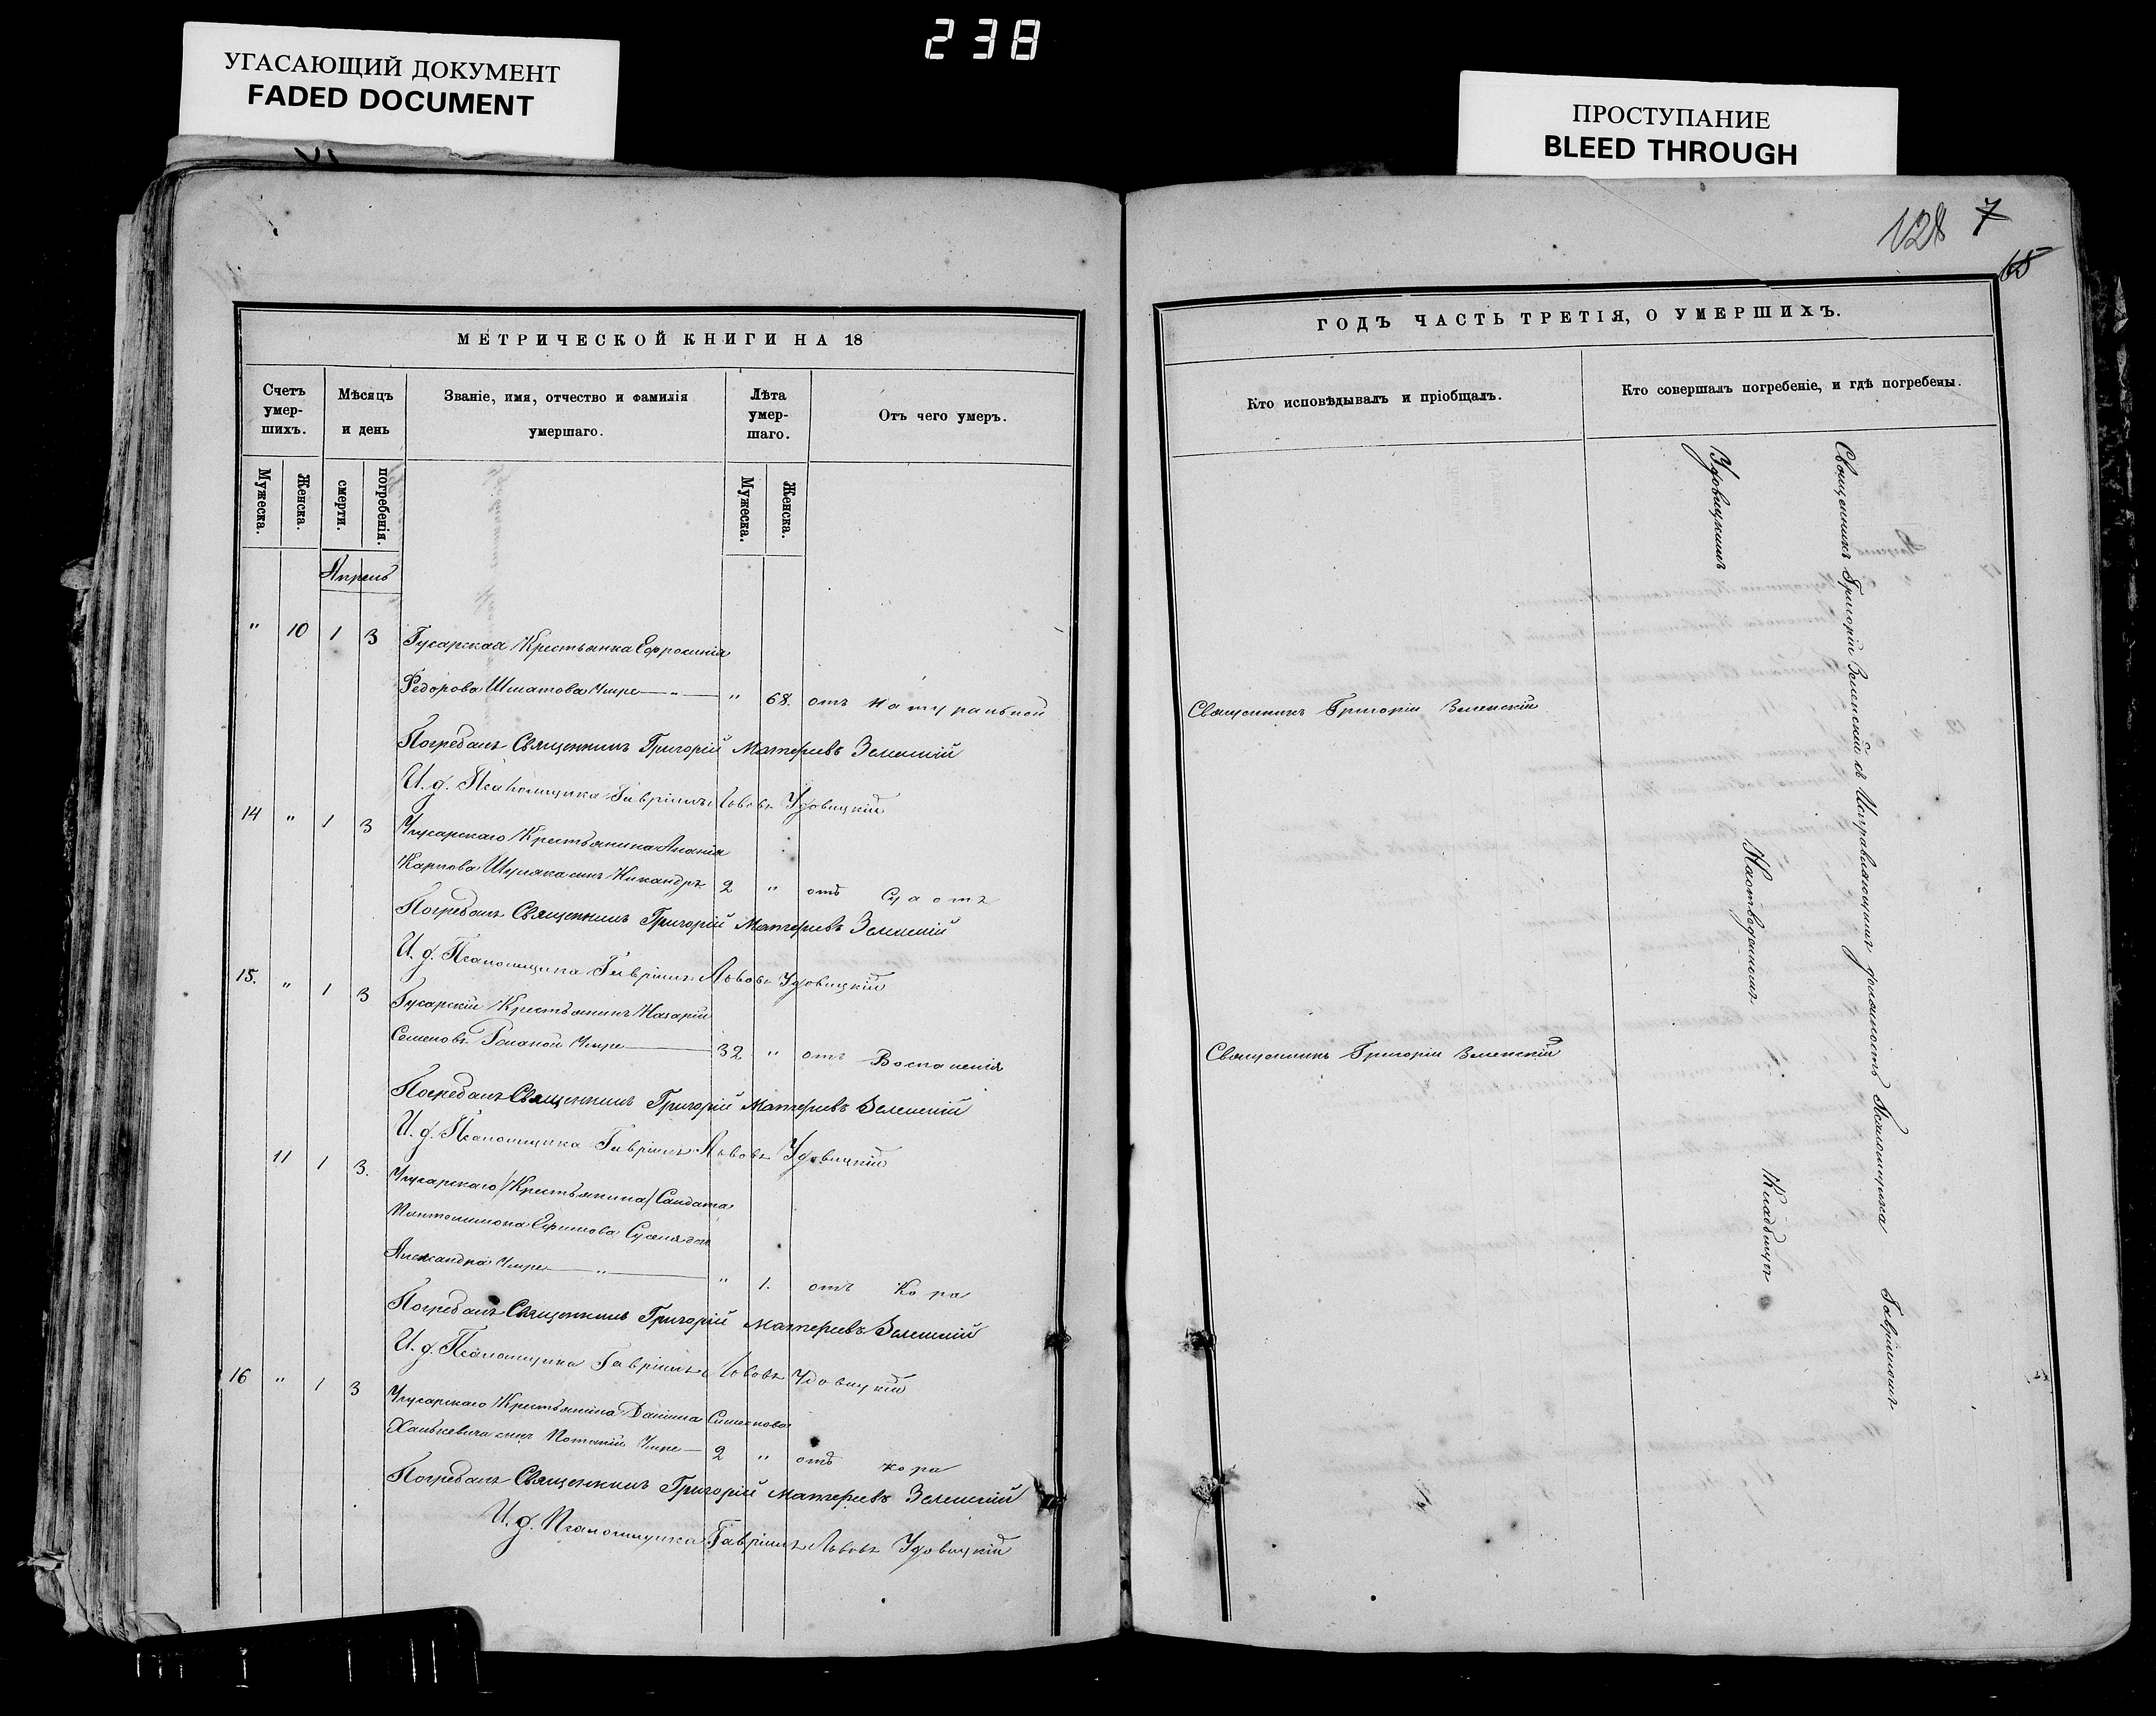 238
УГАСАЮЩИЙ ДОКУМЕНТ
FADED DOCUMENT
ПРОСТУПАНИЕ
BLEED THROUGH
128 7
65
МЕТРИЧЕСКОЙ КНИГИ НА 18
Счетъ умер-шихъ.
Мѣсяцъ и день
Званіе, имя, отчество и фамилія умершаго.
Лѣта умер-шаго.
Отъ чего умеръ.
Мужеска.
Женска.
смерти.
погребенія.
Мужеска.
Женска.
Апрель
" 10 1 3 Гусарская Крестьянка Ефросинія
Федорова " " 68. отъ натуральной
Погребалъ Священникъ Григорій Матфеевъ Зеленскій
И. д. Псаломщика Гавріилъ Львовъ Удовицкій
14 " 1 3 Крестьянина Ананія
Карпова сынъ Никандръ 2 " отъ
Погребалъ Священникъ Григорій Матфеевъ Зеленскій
И. д. Псаломщика Гавріилъ Львовъ Удовицкій
15. " 1 3 Гусарскій Крестьянинъ Назарій
Семеновъ 32 " отъ Воспаленія
Погребалъ Священникъ Григорій Матфеевъ Зеленскій
И. д. Псаломщика Гавріилъ Львовъ Удовицкій
11 1 3. Крестьянина Солдата
Пантелимона Ефимова
Александра " " 1. отъ Кора
Погребалъ Священникъ Григорій Матфеевъ Зеленскій
И. д. Псаломщика Гавріилъ Львовъ Удовицкій
16 " 1 3 Крестьянина Даніила Симеонова
Ханькевича сынъ Потапій 2 " отъ кора
Погребалъ Священникъ Григорій Матфеевъ Зеленскій
И. д. Псаломщика Гавріилъ Львовъ Удовицкій
ГОДЪ ЧАСТЬ ТРЕТІЯ, О УМЕРШИХЪ.
Кто исповѣдывалъ и пріобщалъ.
Кто совершалъ погребеніе, и гдѣ погребены.
Священникъ Григорій Зеленскій
Священникъ Григорій Зеленскій
Священникъ Григорій Зеленскій съ Исправляющимъ должность Псаломщика Гавріиломъ
Удовицкимъ Кладбищѣ